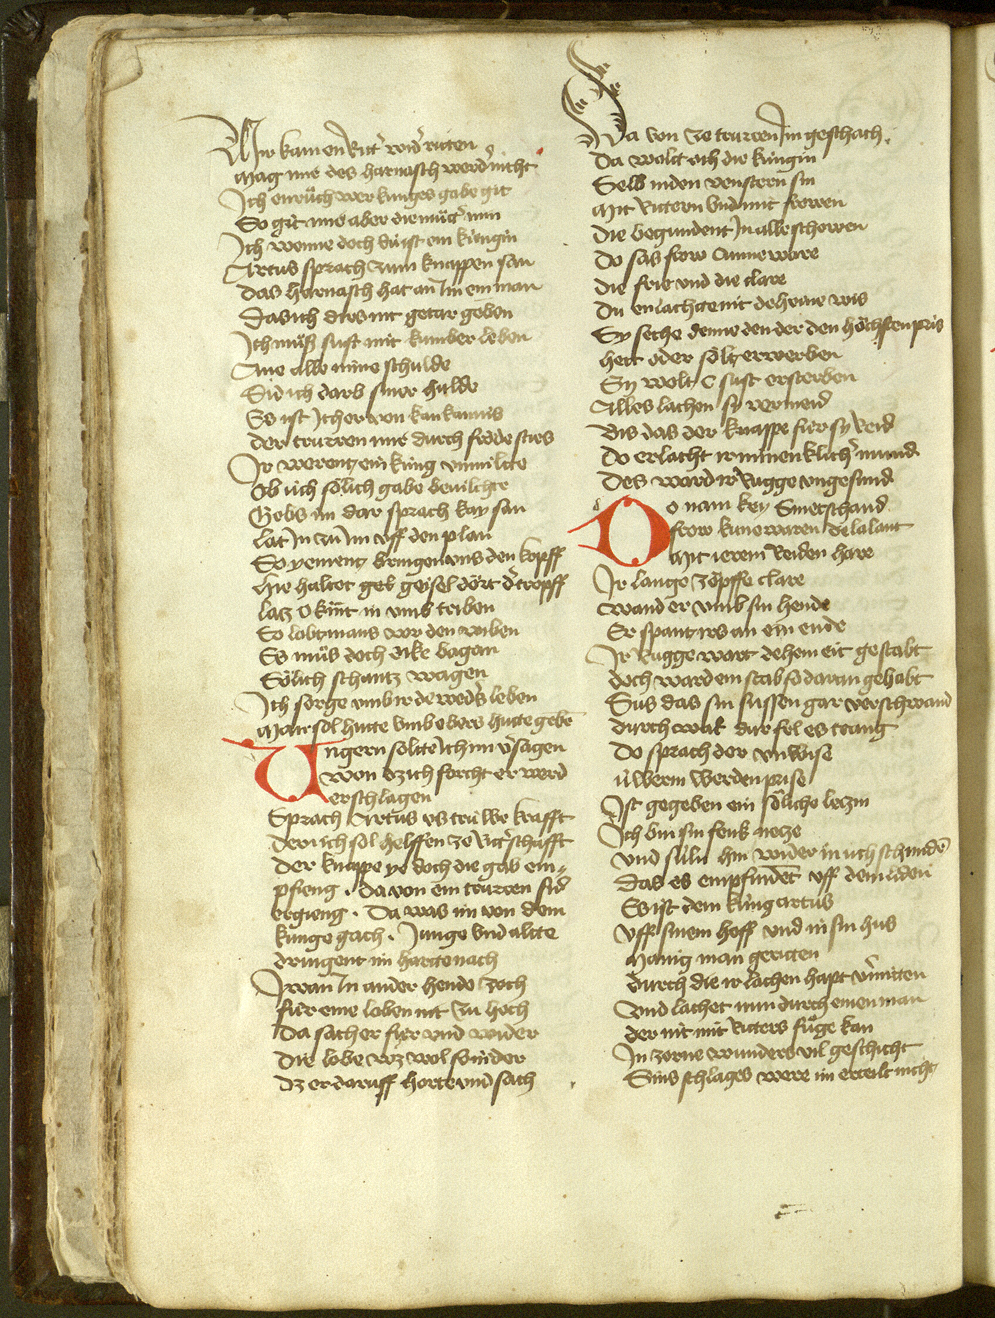 Mir kam ein Rit͛ wid͛ ritten
Mag mir des harnasch werdē nicht
Ich enrùch wer kunges gabe git
So git mir aber die mùt͛ min
Ich wenne doch die ist ein kùngin
Artus sprach zum knappen san
Das harnasch hat an Im ein man
Das ich dirs nit getar geben
Ich mùß sust mit kumber leben
Ane alle mine schulde
Sid ich darb siner hulde
Es ist Jther von kankaunis
Der trurren mir durch fròde sties
Ir werent ein kùng vnmilte
Ob ùch sòlich gabe beuilte
Gebs im dar sprach kay san
Lat In zù Im vff den plan
So yement bringen vns den kopff
Hie haltet geb geisel dòrt d͛ tropff
latz d kint in vmb triben
So lobt mans vor den wiben
Es mùs doch dike bagen
Sòlich schantz wagen
Ich sorge vmb ir deweders leben
Man sol hute vmb ebers hute gebē
Ungern sòlte ich im v͛sagen
won dz ich forcht er werd
erschlagen
Sprach Artus vs truwe krafft
Dem ich sol helffen ze Rit͛schafft
Der knappe ye doch die gab ein-
pfieng . da von ein trurren sid͛
ergieng . Da was im von dem
kunge gach . Junge vnd alte
dringent im harte nach
Iwan In an der hende zoch
fùr eine loben nit zu hoch
Da sach er fùr vnd wider
Die lobe wz wol so nider
Dz er daruff horte vnd sach
Da von ze trurren Im geschach .
Da wolt och die kùngin
Selb in den venstern sin
Mit Rittern vnd mit frowen
Die begundent In alle schowen
Do sas frow Cunneware
Die frie vnd die clare
Du enlachte nit deheine wis
Sy seche denne den der den hòchsten pris
hett oder sòlt erwerben
Sy wolt e sust ersterben
Alles lachen sy vermeid
Bis das der knappe fùr sy Reid
Do erlacht ir minenklich͛ mund
Des ward ir Rugge vngesund
Do nam key Sinetschand
frow kunewaren de lalant
Mit irem Reiden hare
Ir lange zòpffe clare
Wand er vmb sin hende
Er spant irs an ein ende
Ir Rugge wart dehein eit gestabt
doch ward ein stab so daran gehabt
Sus das sin sussen gar verschwand
durch wat dur fel es trang
Do sprach der vnwise
ùwerm werden prise
Ist gegeben ein sòliche letzin
Ich bin sin fenk netze
Vnd sùln hin wider in ùch schmidē
Das es empfindet vff dem liden
Es ist dem kùng artus
Vff sinem hoff vnd in sin hus
Manig man geritten
Durch die ir lachen hapt v͛mitten
Vnd lachet nun durch einen man
der nit mit Ritters fùge kan
In zorne wunders vil geschicht
Sins schlages were im erteilt nicht